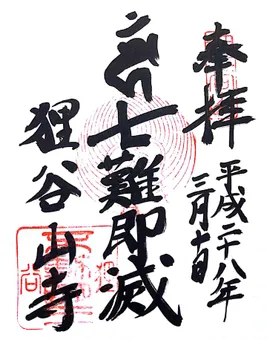 奉拝
平成二十八年
三月十日
七難即滅
狸谷山寺